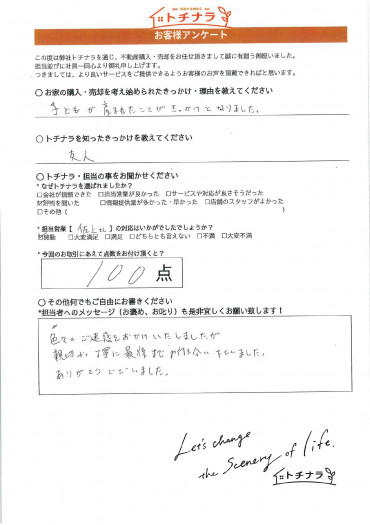 トチナラ
お客様アンケート
この度は弊社トチナラを通じ、不動産購入・売却をお任せ頂きまして誠に有難う御座いました。
担当並びに社員一同心より御礼申し上げます。
つきましては、より良いサービスをご提供できるようお客様のお声を頂戴できればと思います。
○ お家の購入・売却を考え始められたきっかけ・理由を教えてください
子どもが産まれたことがきっかけとなりました。
○ トチナラを知ったきっかけを教えてください
友人
○ トチナラ・担当の事をお聞かせください
* なぜトチナラを選ばれましたか？
□会社が信頼できた □担当営業が良かった □サービスや対応が良さそうだった
評判を聞いた □情報提供量が多かった・早かった □店舗のスタッフがよかった
□その他 ( )
* 担当営業【 】の対応はいかがでしたでしょうか？
感動 □大変満足 □満足 □どちらとも言えない □不満 □大変不満
* 今回のお取引にあえて点数をお付け頂くと？
100点
○ その他何でもご自由にお書きください
*担当者へのメッセージ（お褒め、お叱り）も是非宜しくお願い致します！
色々ご迷惑をおかけいたしましたが
親切かつ丁寧に最後までお付き合い下さいました。
ありがとうございました。
Let's change
the Scenery of life.
トチナラ